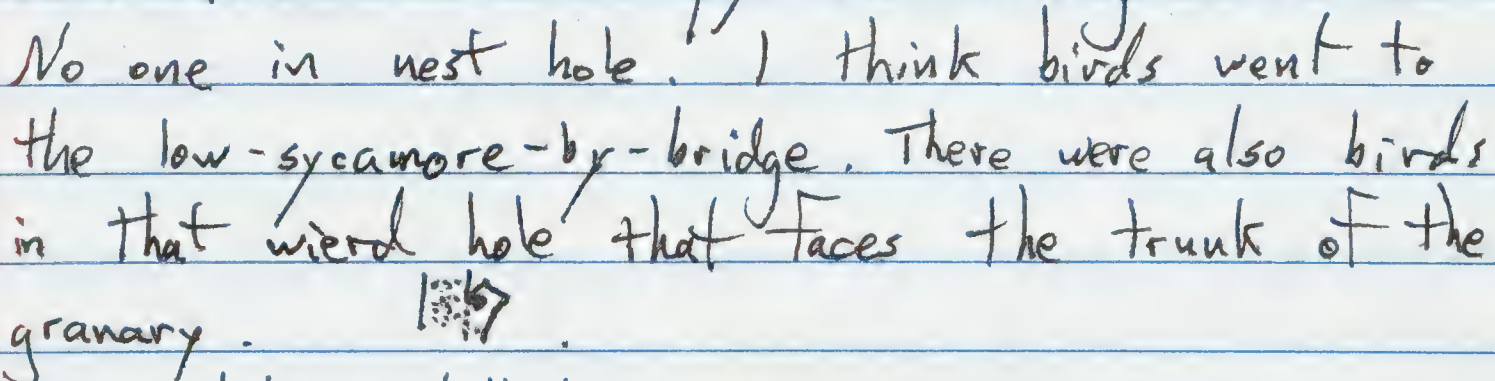 No one in nest hole. I think birds went to
the low-sycamore-by-bridge. There were also birds
in that wierd hole that faces the trunk of the
granary. .